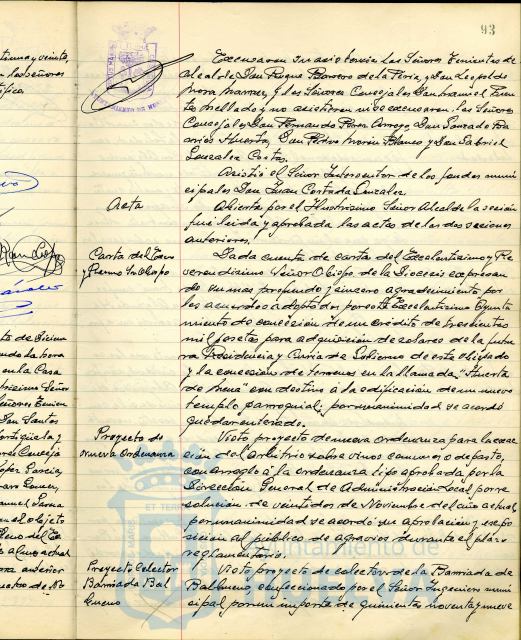 93
Excusaron su asistencia los Señores Tenientes de
Alcalde Don Roque Barrero de la Feria, y Don Leopoldo
Mora y los Señores Concejales Don Manuel
y no asistieron ni se excusaron los Señores
Concejales Don Fernando Perez Arroyo, Don Gonzalo Ba
rrios Huerta, Don Pedro Morón Blanco y Don Gabriel
Gonzalez Costas.
Asistió el Señor Interventor de los fondos muni
cipales Don Juan Cortada Gonzalez
Acta
Abierta por el Ilustrísimo Señor Alcalde la sesión
fué leida y aprobada las actas de las dos sesiones
anteriores.
Carta del Exmo
y Rvdmo Sr Obispo
Dada cuenta de carta del Excelentísimo y Re
verendisimo Señor Obispo de la Diocesis expresan
do su mas profundo y sincero agradecimiento por
los acuerdos adoptados por este Excelentísimo Ayunta
miento de concesión de un crédito de trescientas
mil pesetas para adquisición de solares de la futu
ra Residencia y Curia de Gobierno de este Obispado
y la concesión de terrenos en la llamada "Huerta
de Mena" con destino á la edificación de un nuevo
templo parroquial; por unanimidad se acordó
quedar enterado.
Proyecto de
nueva Ordenanza
Visto proyecto de nueva ordenanza para la exac
ción del Arbitrio sobre vinos comunes o de pasto,
con arreglo á la ordenanza tipo aprobada por la
Dirección General de Administración Local por re
solución de veintidos de Noviembre del año actual,
por unanimidad se acordó su aprobación y expo
sición al público de agravios durante el plazo
reglamentario.
Proyecto Colector
Barriada Bal
bueno
Visto proyecto de colector de la Barriada de
Balbueno, confeccionado por el Señor Ingeniero muni
cipal, por un importe de quinientas noventa y nueve
Ayuntamiento de
HUELVA